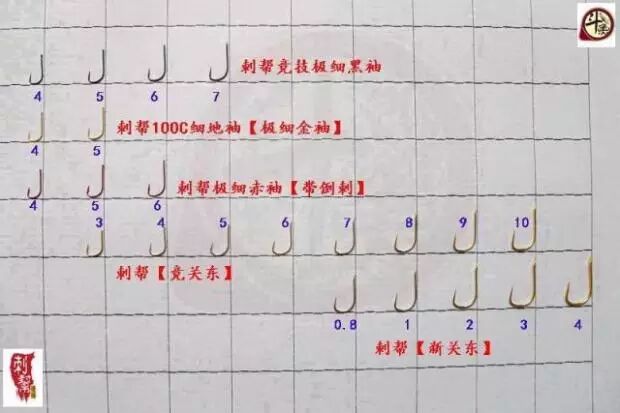 斗
4 5 6 7
刺帮竞技极细黑袖
刺帮100C细地袖【极细金袖】
4 5
刺帮极细赤袖【带倒刺】
4 5 6
3 4 5 6 7 8 9 10
刺帮【竞关东】
0.8 1 2 3 4
刺帮【新关东】
刺帮